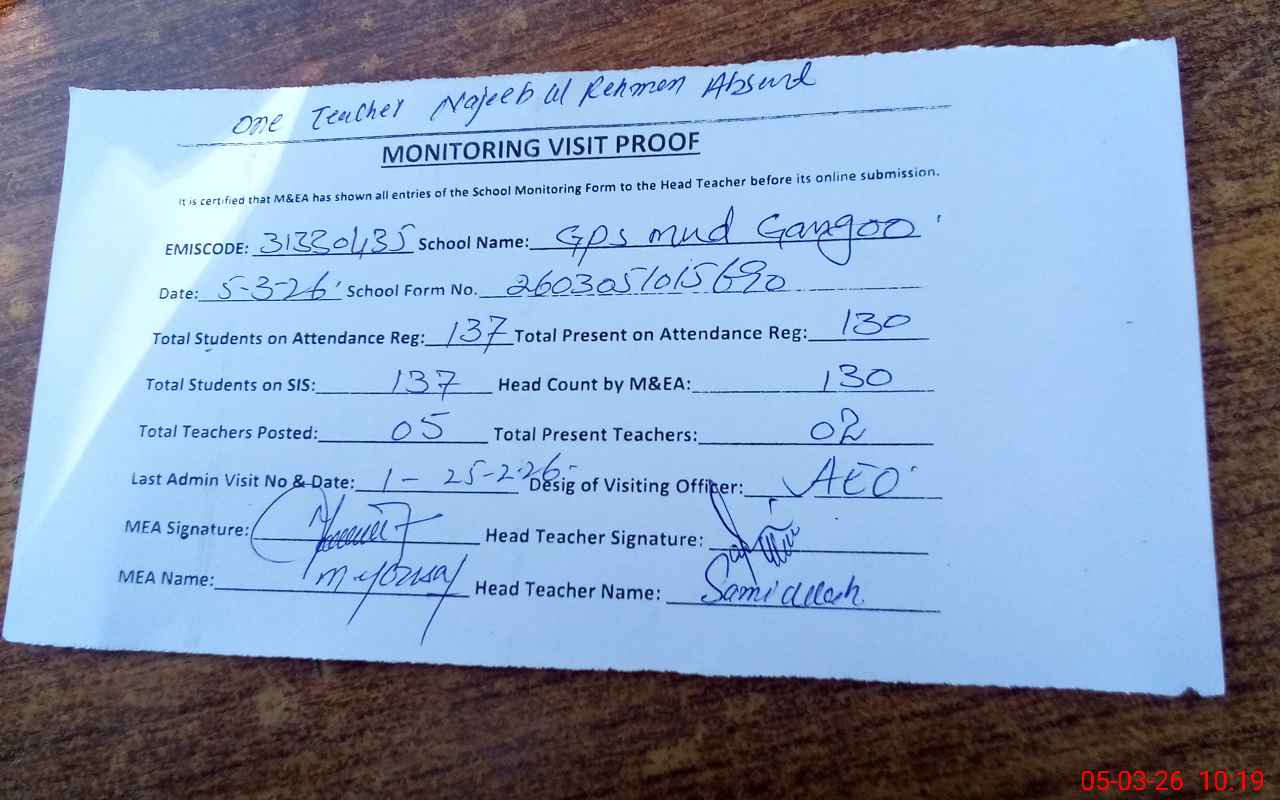 One Teacher Najeeb Ul Rehman Absend
MONITORING VISIT PROOF
It is certified that M&EA has shown all entries of the School Monitoring Form to the Head Teacher before its online submission.
EMISCODE: 31330435 School Name: GPS mud Gangoo
Date: 5-3-26 School Form No. 2603051015690
Total Students on Attendance Reg: 137 Total Present on Attendance Reg: 130
Total Students on SIS: 137 Head Count by M&EA: 130
Total Teachers Posted: 05 Total Present Teachers: 02
Last Admin Visit No & Date: 1 - 25-2-26 Desig of Visiting Officer: AEO
MEA Signature: Head Teacher Signature:
MEA Name: M Yousaf Head Teacher Name: Samiullah
05-03-26 10:19